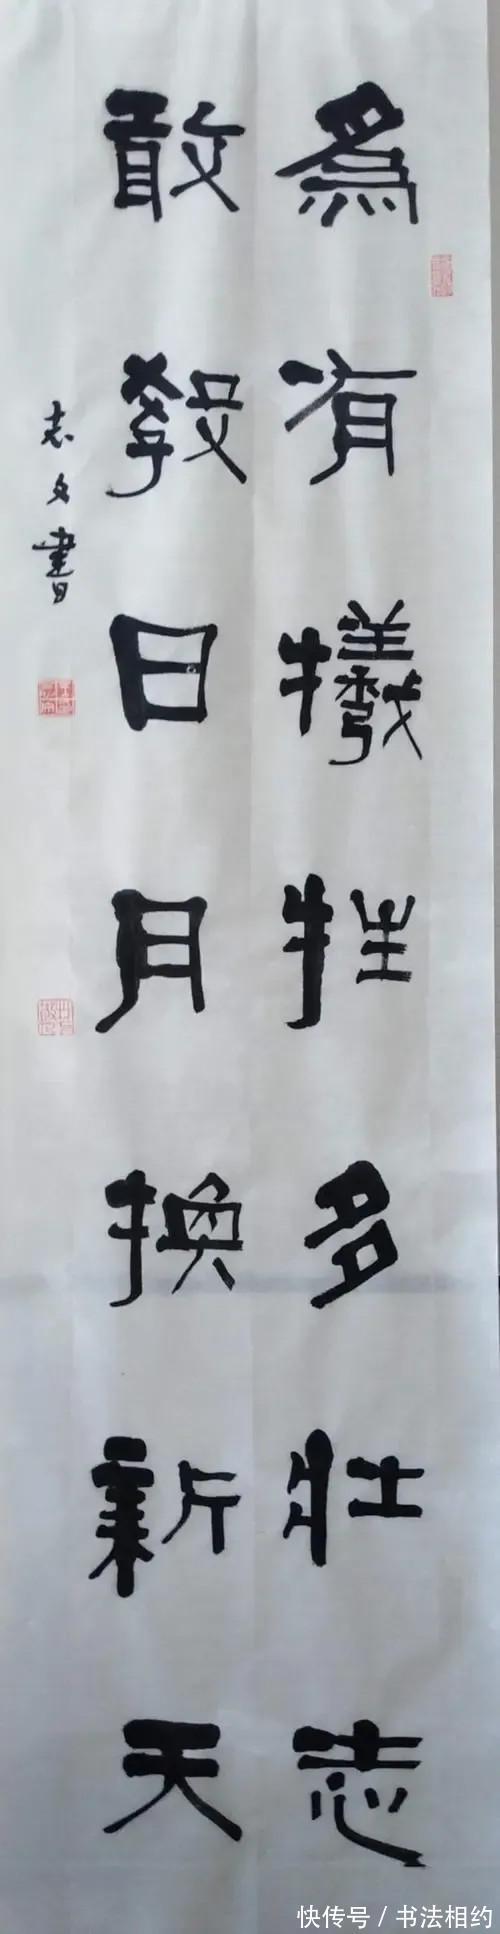 為有犧牲多壯志
敢教日月換新天
志文書
快传号 / 书法相约